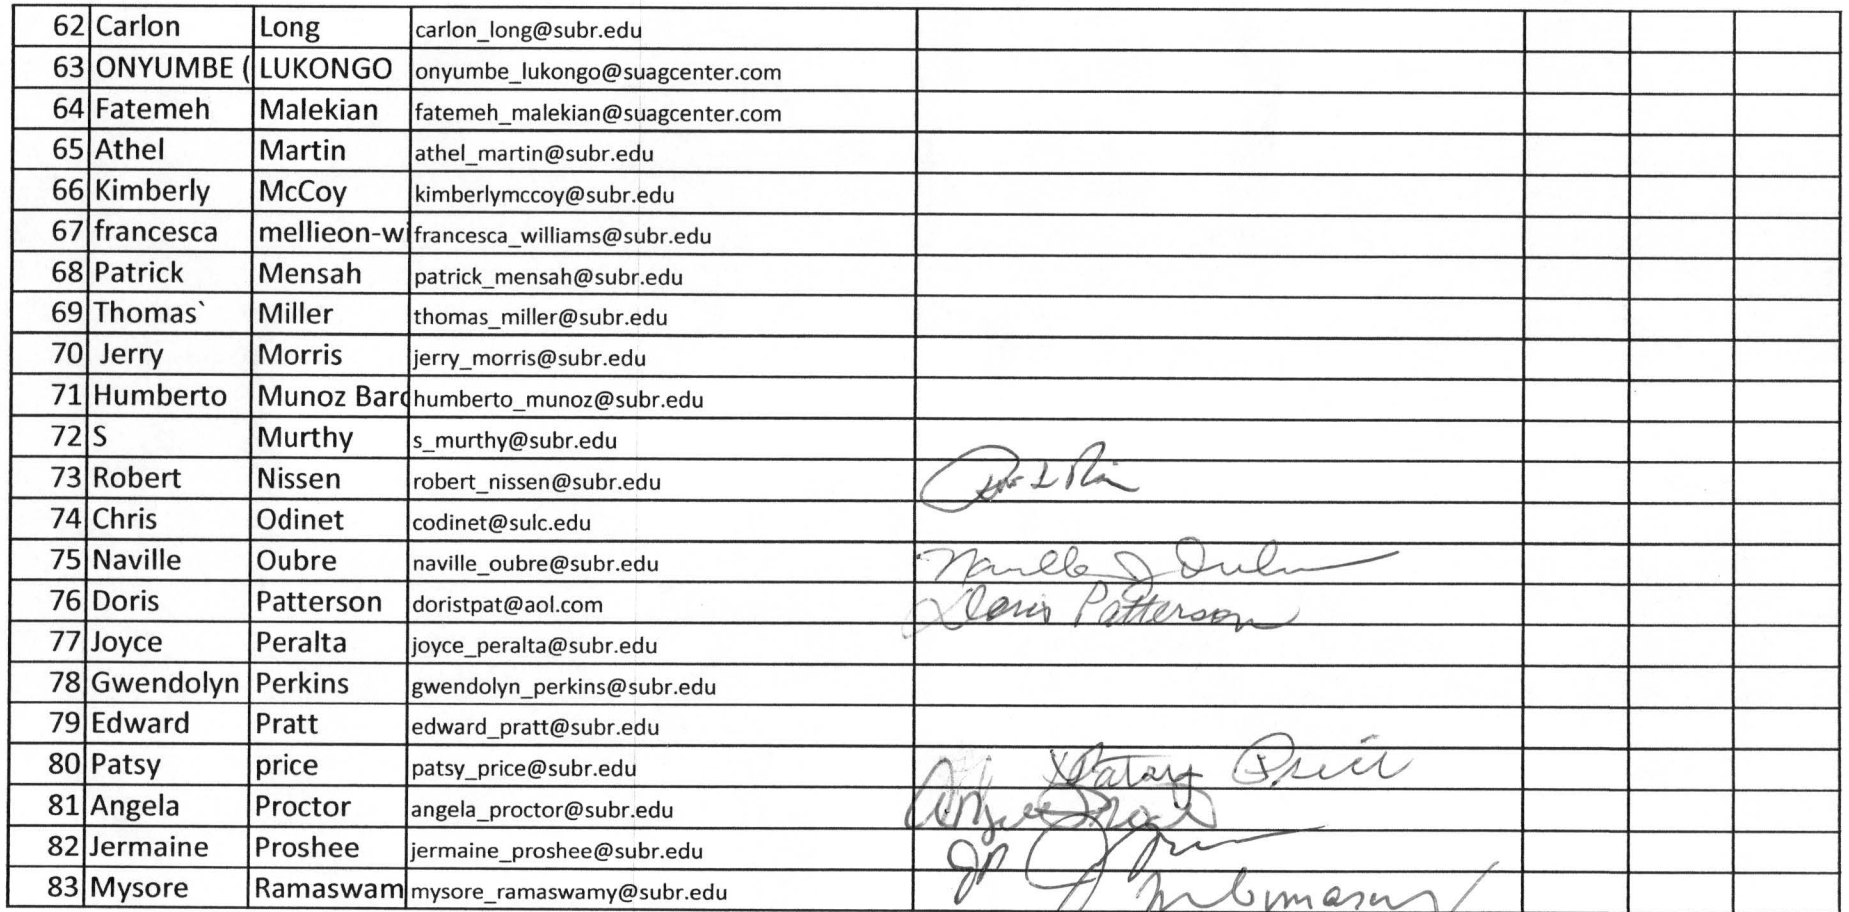 62 Carlon Long carlon_long@subr.edu
63 ONYUMBE ( LUKONGO onyumbe_lukongo@suagcenter.com
64 Fatemeh Malekian fatemeh_malekian@suagcenter.com
65 Athel Martin athel_martin@subr.edu
66 Kimberly McCoy kimberlymccoy@subr.edu
67 francesca mellieon-wi francesca_williams@subr.edu
68 Patrick Mensah patrick_mensah@subr.edu
69 Thomas` Miller thomas_miller@subr.edu
70 Jerry Morris jerry_morris@subr.edu
71 Humberto Munoz Barc humberto_munoz@subr.edu
72 S Murthy s_murthy@subr.edu
73 Robert Nissen robert_nissen@subr.edu
74 Chris Odinet codinet@sulc.edu
75 Naville Oubre naville_oubre@subr.edu Naville J Oubre
76 Doris Patterson doristpat@aol.com Doris Patterson
77 Joyce Peralta joyce_peralta@subr.edu
78 Gwendolyn Perkins gwendolyn_perkins@subr.edu
79 Edward Pratt edward_pratt@subr.edu
80 Patsy price patsy_price@subr.edu Patsy Price
81 Angela Proctor angela_proctor@subr.edu
82 Jermaine Proshee jermaine_proshee@subr.edu
83 Mysore Ramaswam mysore_ramaswamy@subr.edu